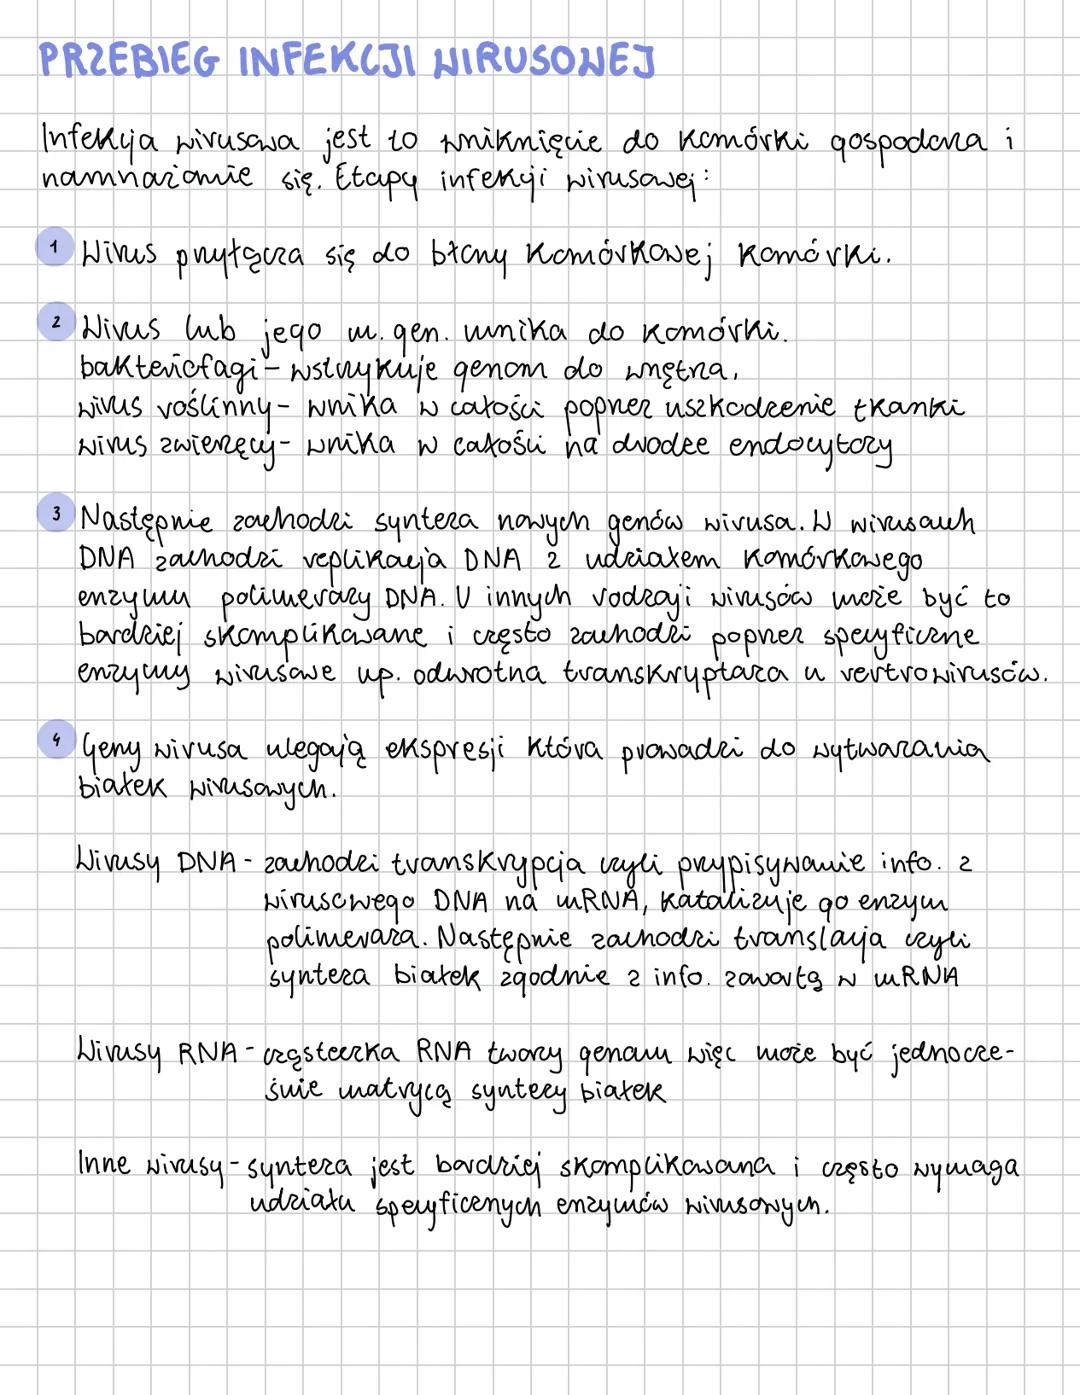 PRZEBIEG INFEKCJI WIRUSOWEJ
Infekcja wirusowa jest to wniknięcie do komórki gospodarza i
namnażanie się. Etapy infekcji wirusowej:
1 Wirus przyłącza się do błony komórkowej komórki.
2 Wirus lub jego m. gen. wnika do komórki.
bakteriofagi - wstrzykuje genom do wnętrza,
wirus roślinny - wnika w całości poprzez uszkodzenie tkanki
wirus zwierzęcy - wnika w całości na drodze endocytozy
3 Następnie zachodzi synteza nowych genów wirusa. W wirusach
DNA zachodzi replikacja DNA z udziałem komórkowego
enzymu polimerazy DNA. U innych rodzaji wirusów może być to
bardziej skomplikowane i często zachodzi poprzez specyficzne
enzymy wirusowe np. odwrotna transkryptaza u retrowirusów.
4 Geny wirusa ulegają ekspresji która prowadzi do wytwarzania
białek wirusowych.
Wirusy DNA - zachodzi transkrypcja czyli przypisywanie info. z
wirusowego DNA na mRNA, katalizuje go enzym
polimeraza. Następnie zachodzi translacja czyli
synteza białek zgodnie z info. zawartą w mRNA
Wirusy RNA - cząsteczka RNA tworzy genom więc może być jednocze-
śnie matrycą syntezy białek
Inne wirusy - synteza jest bardziej skomplikowana i często wymaga
udziału specyficznych enzymów wirusowych.